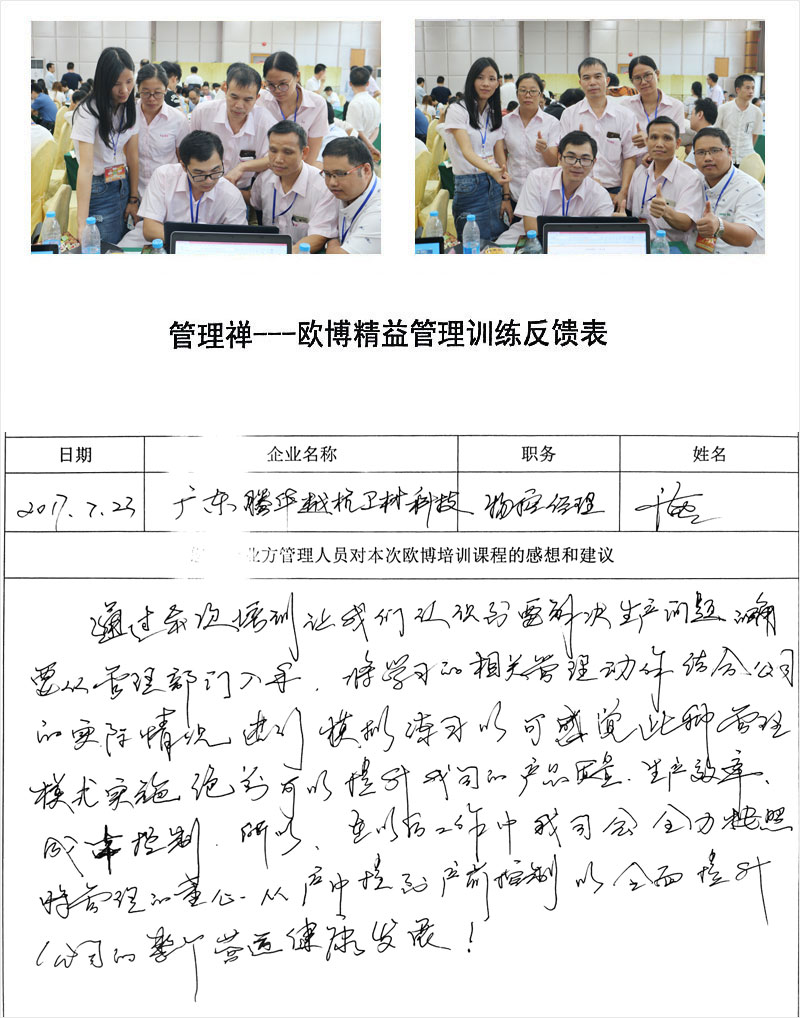 管理禅---欧博精益管理训练反馈表
日期 企业名称 职务 姓名
2017.7.23 广东腾华越杭卫材科技 物控经理
业方管理人员对本次欧博培训课程的感想和建议
通过本次培训让我们认识到要解决生产问题、的确
要从管理部门入手，将学习的相关管理动作结合公司
的实际情况进行模拟练习以可感觉此种管理
模式实施绝对可以提升我司的产品质量、生产效率、
成本控制，所以，在以后工作中我司会全力按照
管理的 从产中提到产前控制以全面提升
公司的 营运健康发展！